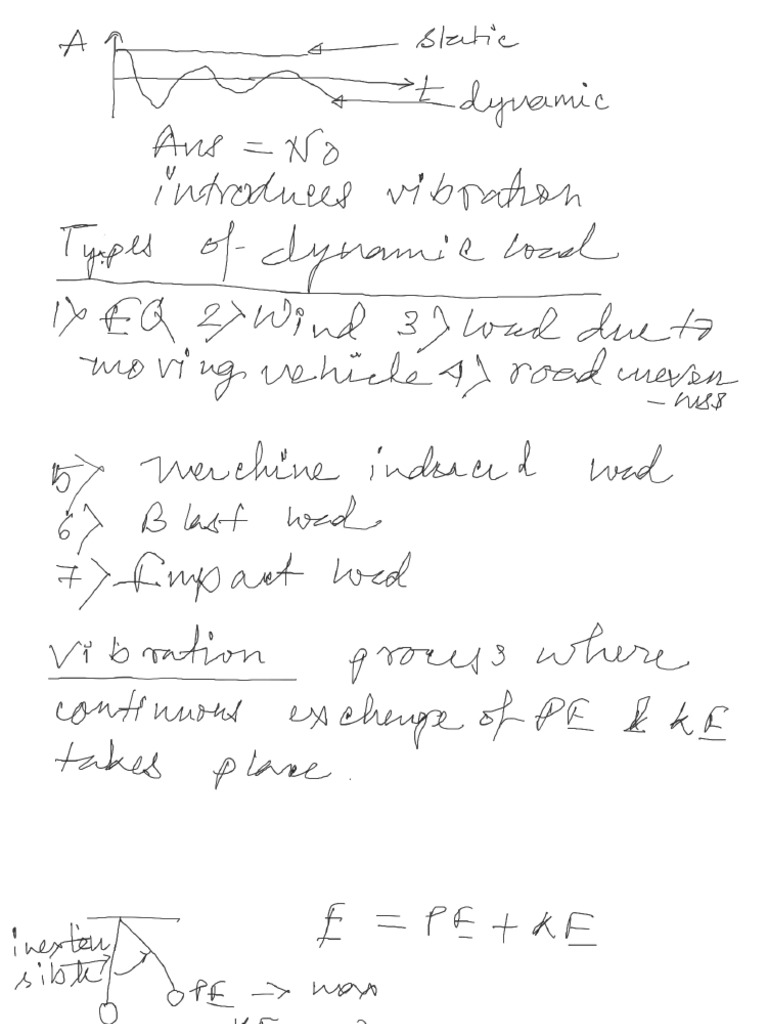 A static
t dynamic
Ans = No
introduces vibration
Types of dynamic load
1> EQ 2> Wind 3> load due to
moving vehicle 4> road uneven
- ness
5> Machine induced load
6> Blast load
7> Impact load
Vibration process where
continuous exchange of PE & KE
takes place.
E = PE + KE
inexten
sible
PE -> max
KE